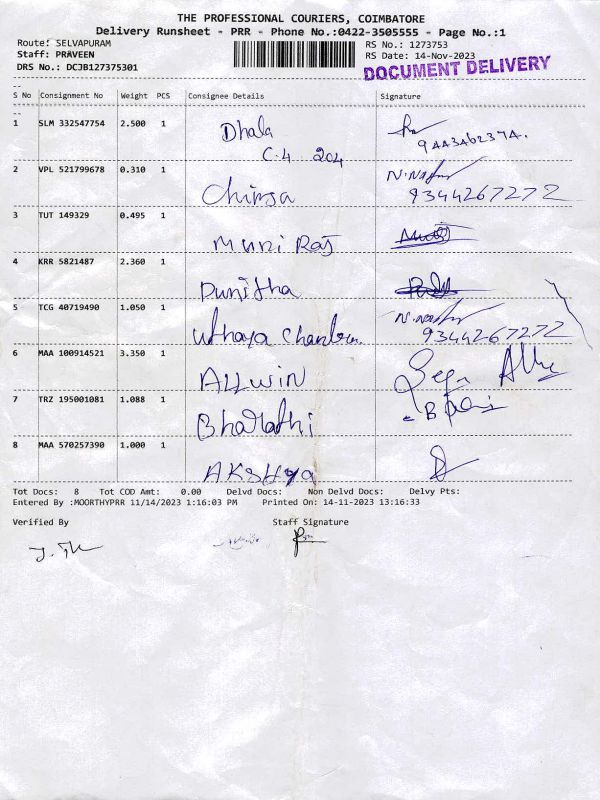 THE PROFESSIONAL COURIERS, COIMBATORE
Delivery Runsheet - PRR - Phone No.:0422-3505555 - Page No.:1
Route: SELVAPURAM
RS No.: 1273753
Staff: PRAVEEN
RS Date: 14-Nov-2023
DRS No.: DCJB127375301
DOCUMENT DELIVERY
S No Consignment No Weight PCS Consignee Details Signature
1 SLM 332547754 2.500 1 Dhala
C.4 204 9443462374.
2 VPL 521799678 0.310 1 N.Nathu
9344267272
3 TUT 149329 0.495 1 Muni Raj
4 KRR 5821487 2.360 1 Dunitha
5 TCG 40719490 1.050 1 N.Nathu
Uthaya 9344267272
6 MAA 100914521 3.350 1 ALLWIN
7 TRZ 195001081 1.088 1 Bharathi
8 MAA 570257390 1.000 1 AKSHYA
Tot Docs: 8 Tot COD Amt: 0.00 Delvd Docs: Non Delvd Docs: Delvy Pts:
Entered By :MOORTHYPRR 11/14/2023 1:16:03 PM Printed On: 14-11-2023 13:16:33
Verified By Staff Signature